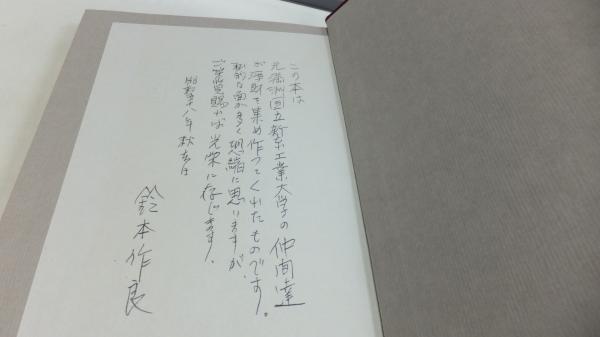 この本は
元満洲国立新京工業大学の仲間達
が浄財を集め作ってくれたものです。
私的な面が多く恐縮に思いますが、
ご笑覧賜れば光栄に存じます。
昭和五十八年秋吉日
鈴木作良